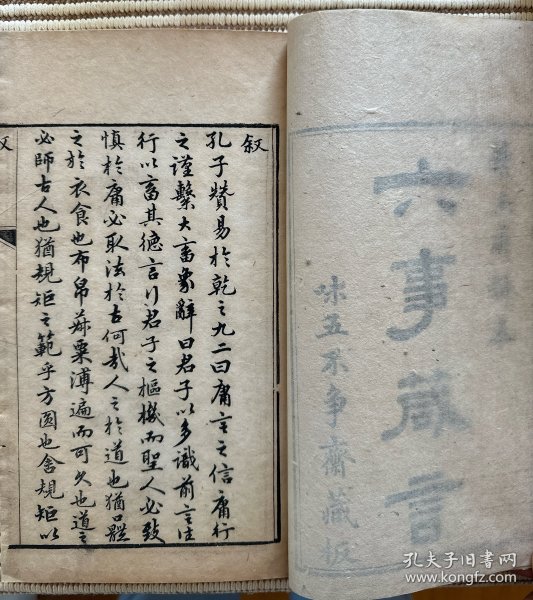 六事葴言
味五不争齋藏板
叙
孔子贊易於乾之九二曰庸言之信庸行
之謹繫大畜象辭曰君子以多識前言往
行以畜其德言行君子之樞機而聖人必致
慎於庸必取法於古何哉人之於道也猶口體
之於衣食也布帛菽粟溥遍而可久也道之
必師古人也猶規矩之範乎方圓也舍規矩以
孔夫子旧书网
www.kongfz.com